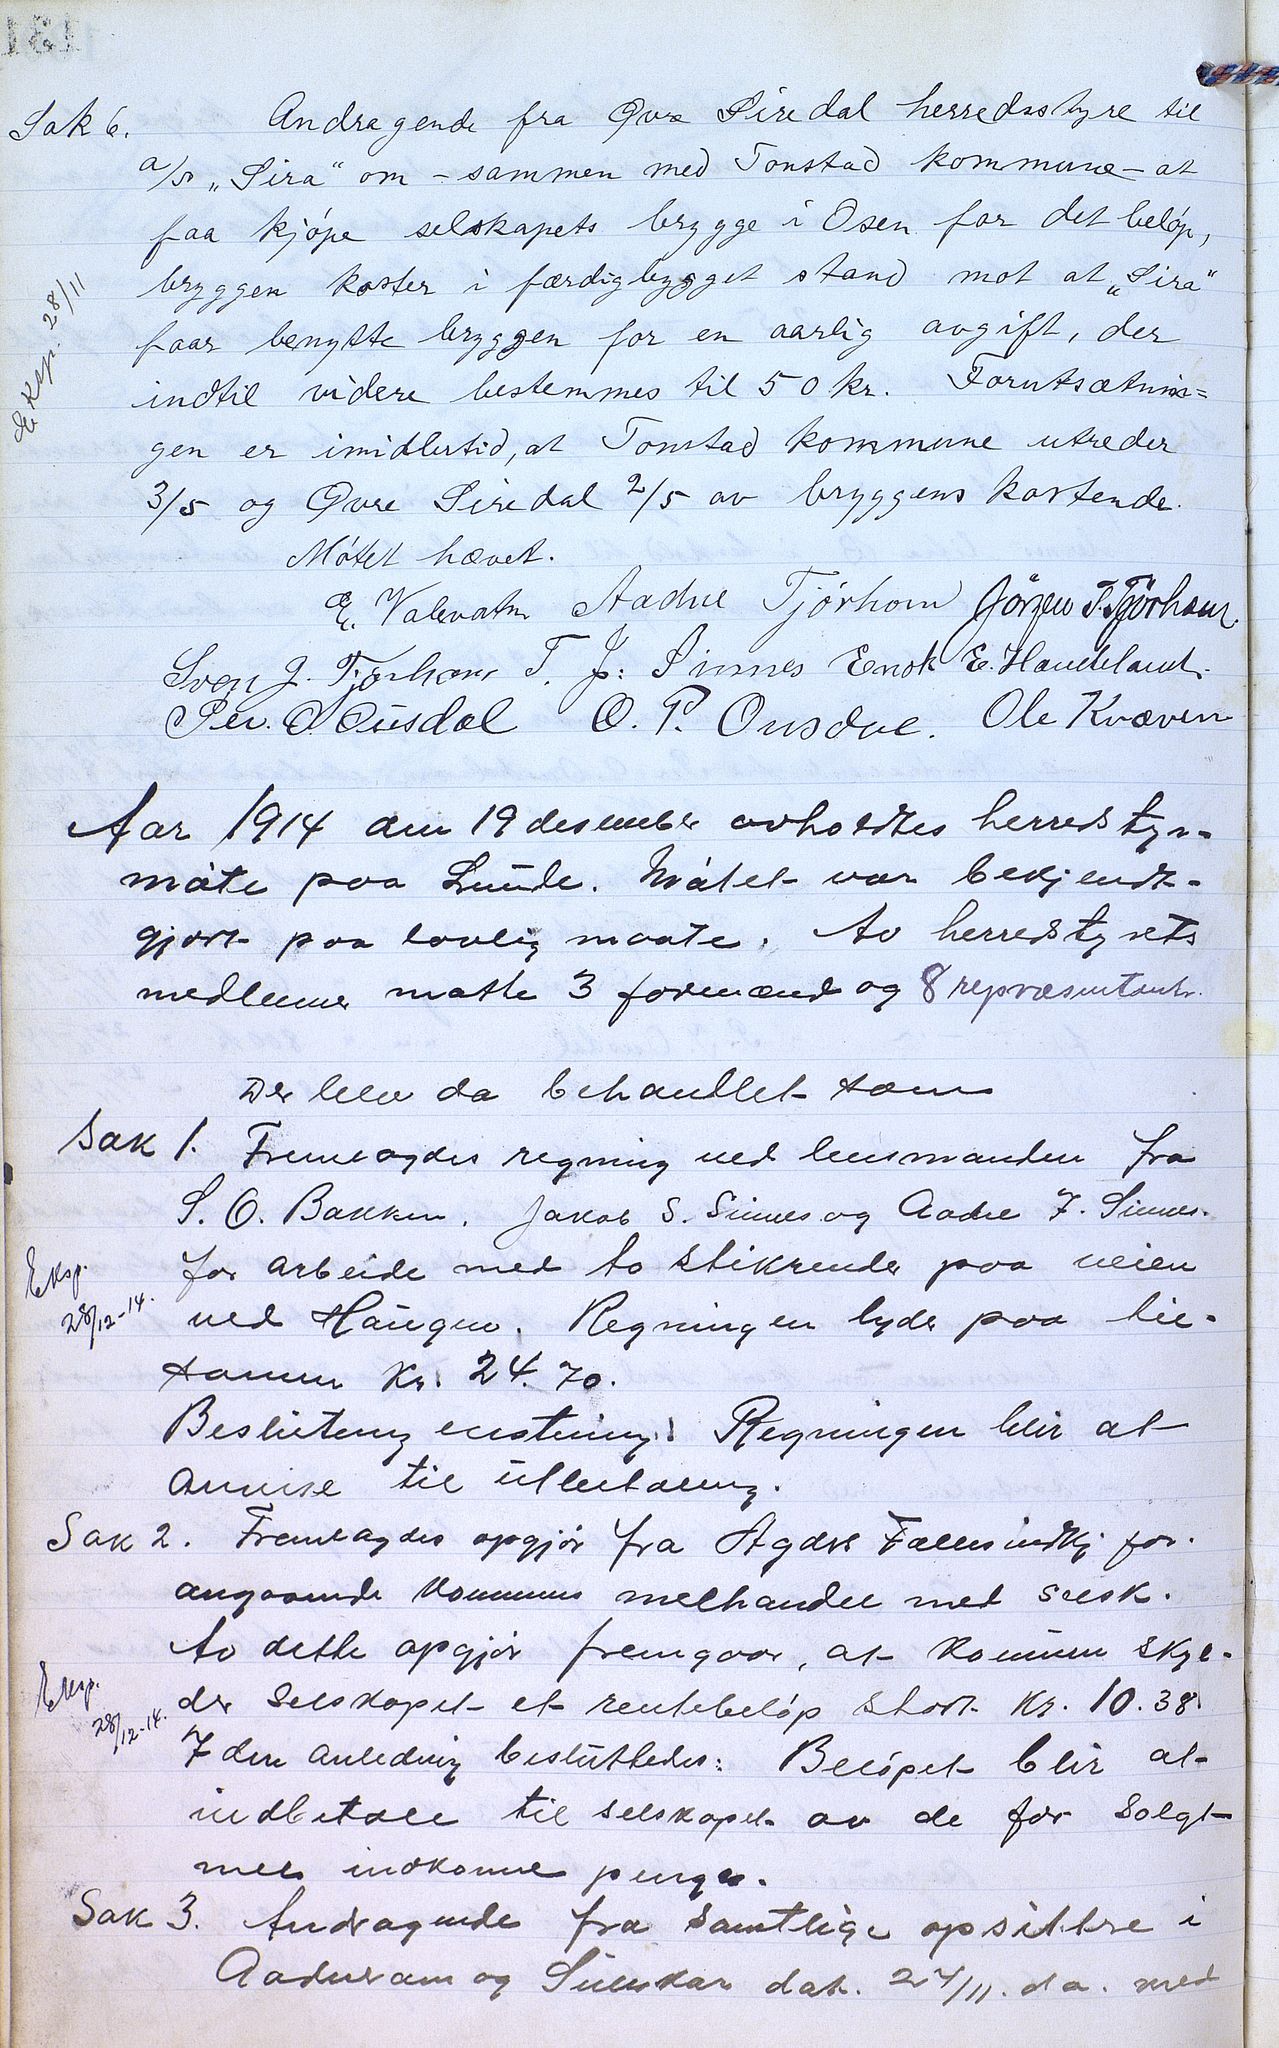 131
Sak 6. Andragende fra Øvre Siredal herredsstyre til
a/s „Sira" om – sammen med Tonstad kommune – at
faa kjøpe selskapets brygge i Osen for det beløp,
bryggen koster i færdigbygget stand mot at „Sira"
faar benytte bryggen for en aarlig avgift, der
indtil videre bestemmes til 50 kr. Forutsætnin=
gen er imidlertid, at Tonstad kommune utreder
3/5 og Øvre Siredal 2/5 av bryggens kostende.
eksp. 28/11
Møtet hævet.
E. Valevatn Aadne Tjørhom Jørgen T. Tjørhom.
Sven J. Tjørhom T. J. Sinnes Enok E. Haukeland.
Per. O. Ousdal O. P. Ousdal. Ole Kvæven
Aar 1914 den 19 desember avholdtes herredsstyr-
møte paa Lunde. Møtet var bekjendt-
gjort paa lovlig maate. Av herredstyrets
medlemer møtte 3 formænd og 8 repræsentantr.
Der blev da behandlet som
Sak 1. Fremlagdes regning ved lensmanden fra
S. O. Bakken, Jakob S. Sinnes og Aadne F. Sinnes.
for arbeide med to stikrender paa veien
ved Haugen. Regningen lyder paa til-
sammen Kr. 24.70.
Eksp.
28/12-14.
Beslutning enstemig: Regningen blir at
anvise til utbetaling.
Sak 2. Fremlagdes opgjør fra Agder Fællesindkj for.
angaaende kommunens melhandel med selsk.
Av dette opgjør fremgaar, at kommunen skyl-
der selskapet et rentebeløp stort Kr. 10.38.
Eksp.
28/12-14.
I den anledning besluttedes: Beløpet blir at
indbetale til selskapet av de for solgt
mel indkomne penger.
Sak 3. Andragende fra samtlige opsittere i
Aadneram og Suleskar dat. 27/11. d a. med